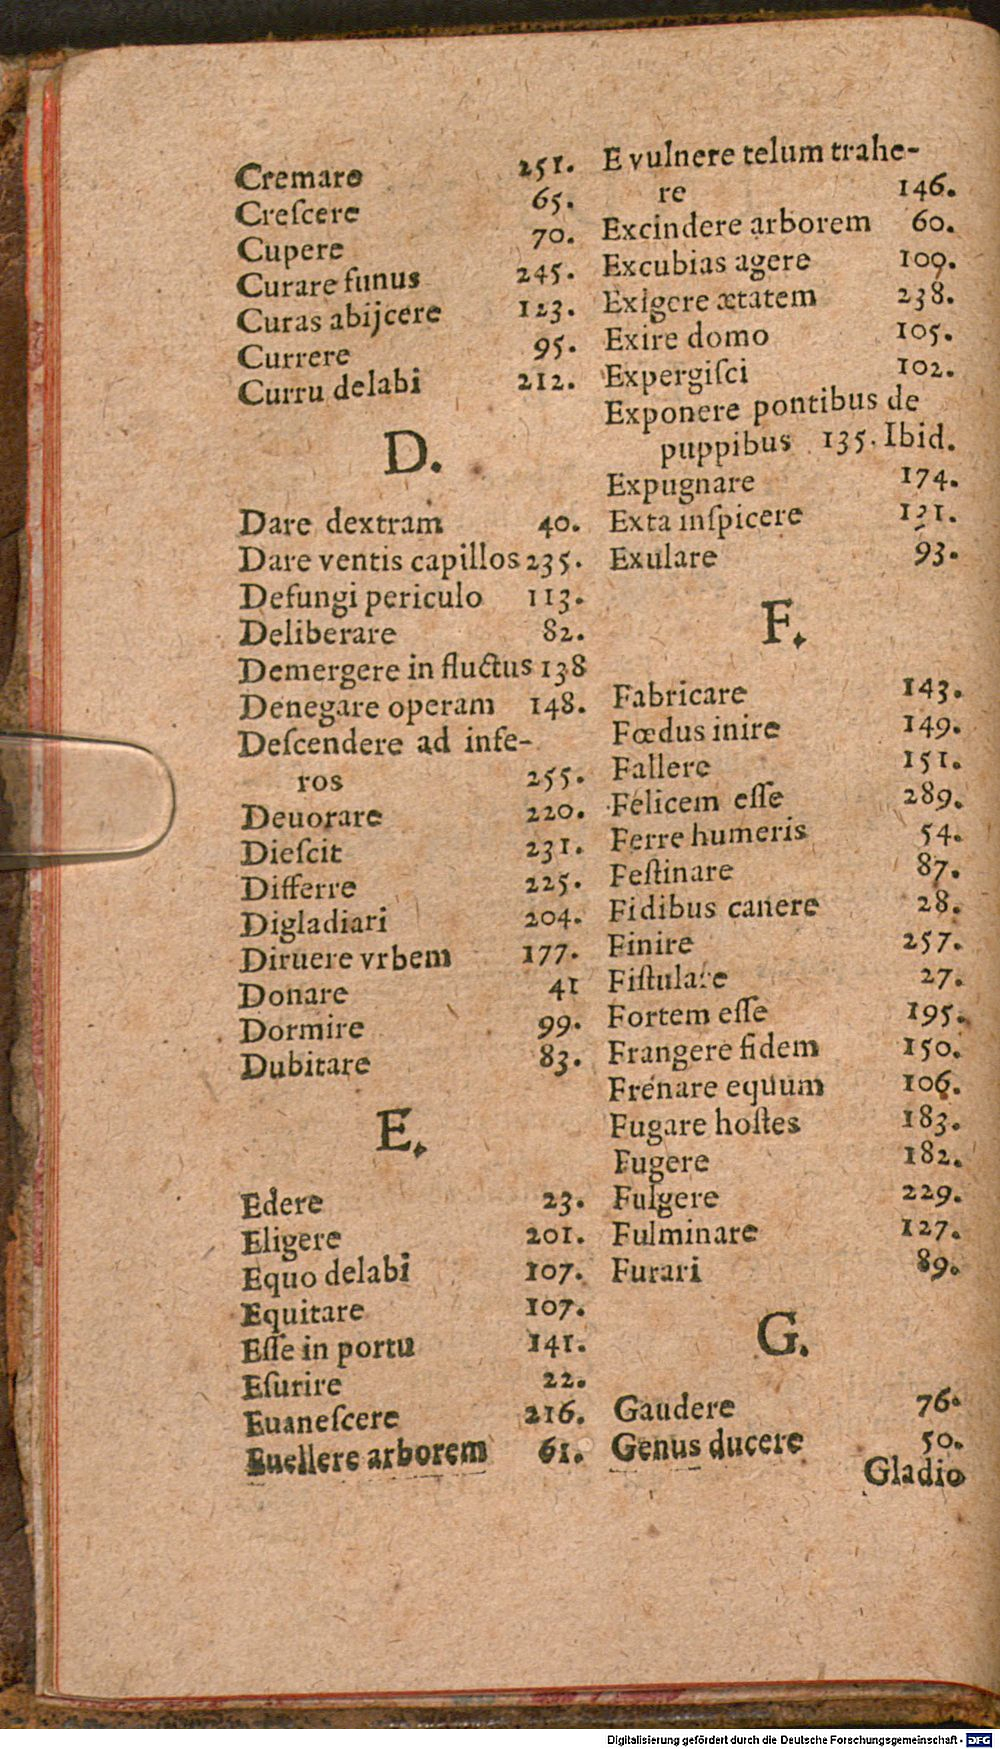 Cremare 251.
Creſcere 65.
Cupere 70.
Curare funus 245.
Curas abijcere 123.
Currere 95.
Curru delabi 212.
D.
Dare dextram 40.
Dare ventis capillos 235.
Defungi periculo 113.
Deliberare 82.
Demergere in fluctus 138
Denegare operam 148.
Deſcendere ad infe-
ros 255.
Deuorare 220.
Dieſcit 231.
Differre 225.
Digladiari 204.
Diruere vrbem 177.
Donare 41
Dormire 99.
Dubitare 83.
E.
Edere 23.
Eligere 201.
Equo delabi 107.
Equitare 107.
Eſſe in portu 141.
Eſurire 22.
Euaneſcere 216.
Euellere arborem 61.
E vulnere telum trahe-
re 146.
Excindere arborem 60.
Excubias agere 109.
Exigere ætatem 238.
Exire domo 105.
Expergiſci 102.
Exponere pontibus de
puppibus 135. Ibid.
Expugnare 174.
Exta inſpicere
Exulare 93.
F.
Fabricare 143.
Fœdus inire 149.
Fallere 151.
Felicem eſſe 289.
Ferre humeris 54.
Feſtinare 87.
Fidibus canere 28.
Finire 257.
Fiſtulare 27.
Fortem eſſe 195.
Frangere fidem 150.
Frenare equum 106.
Fugare hoſtes 183.
Fugere 182.
Fulgere 229.
Fulminare 127.
Furari 89.
G.
Gaudere 76.
Genus ducere 50.
Gladio
Digitalisierung gefördert durch die Deutsche Forschungsgemeinschaft - DFG